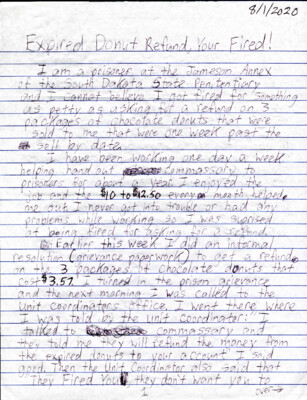 8/1/2020
Expired Donut Refund, Your Fired!
I am a prisoner at the Jameson Annex
of the South Dakota State Penitentiary
and I cannot believe I got fired for something
as petty as asking for a refund on 3
packages of chocolate donuts that were
sold to me that were one week past the
sell by date.
I have been working one day a week
helping hand out commassary to
prisoners for about a year. I enjoyed the
job and the $10 to $12.50 every month helped
me out. I never got into trouble or had any
problems while working so I was suprised
at being fired for asking for a refund.
Earlier this week I did an informal
resolution (grievance paperwork) to get a refund
on the 3 packages of chocolate donuts that
cost $3.57. I turned in the prison grievance
and the next morning I was called to the
Unit coordinators office. I went there where
I was told by the Unit Coordinator: "I
talked to commassary and
they told me they will refund the money from
the expired donuts to your account" I said
good. Then the Unit Coordinator also said that
"They Fired You, they don't want you to
1
over→